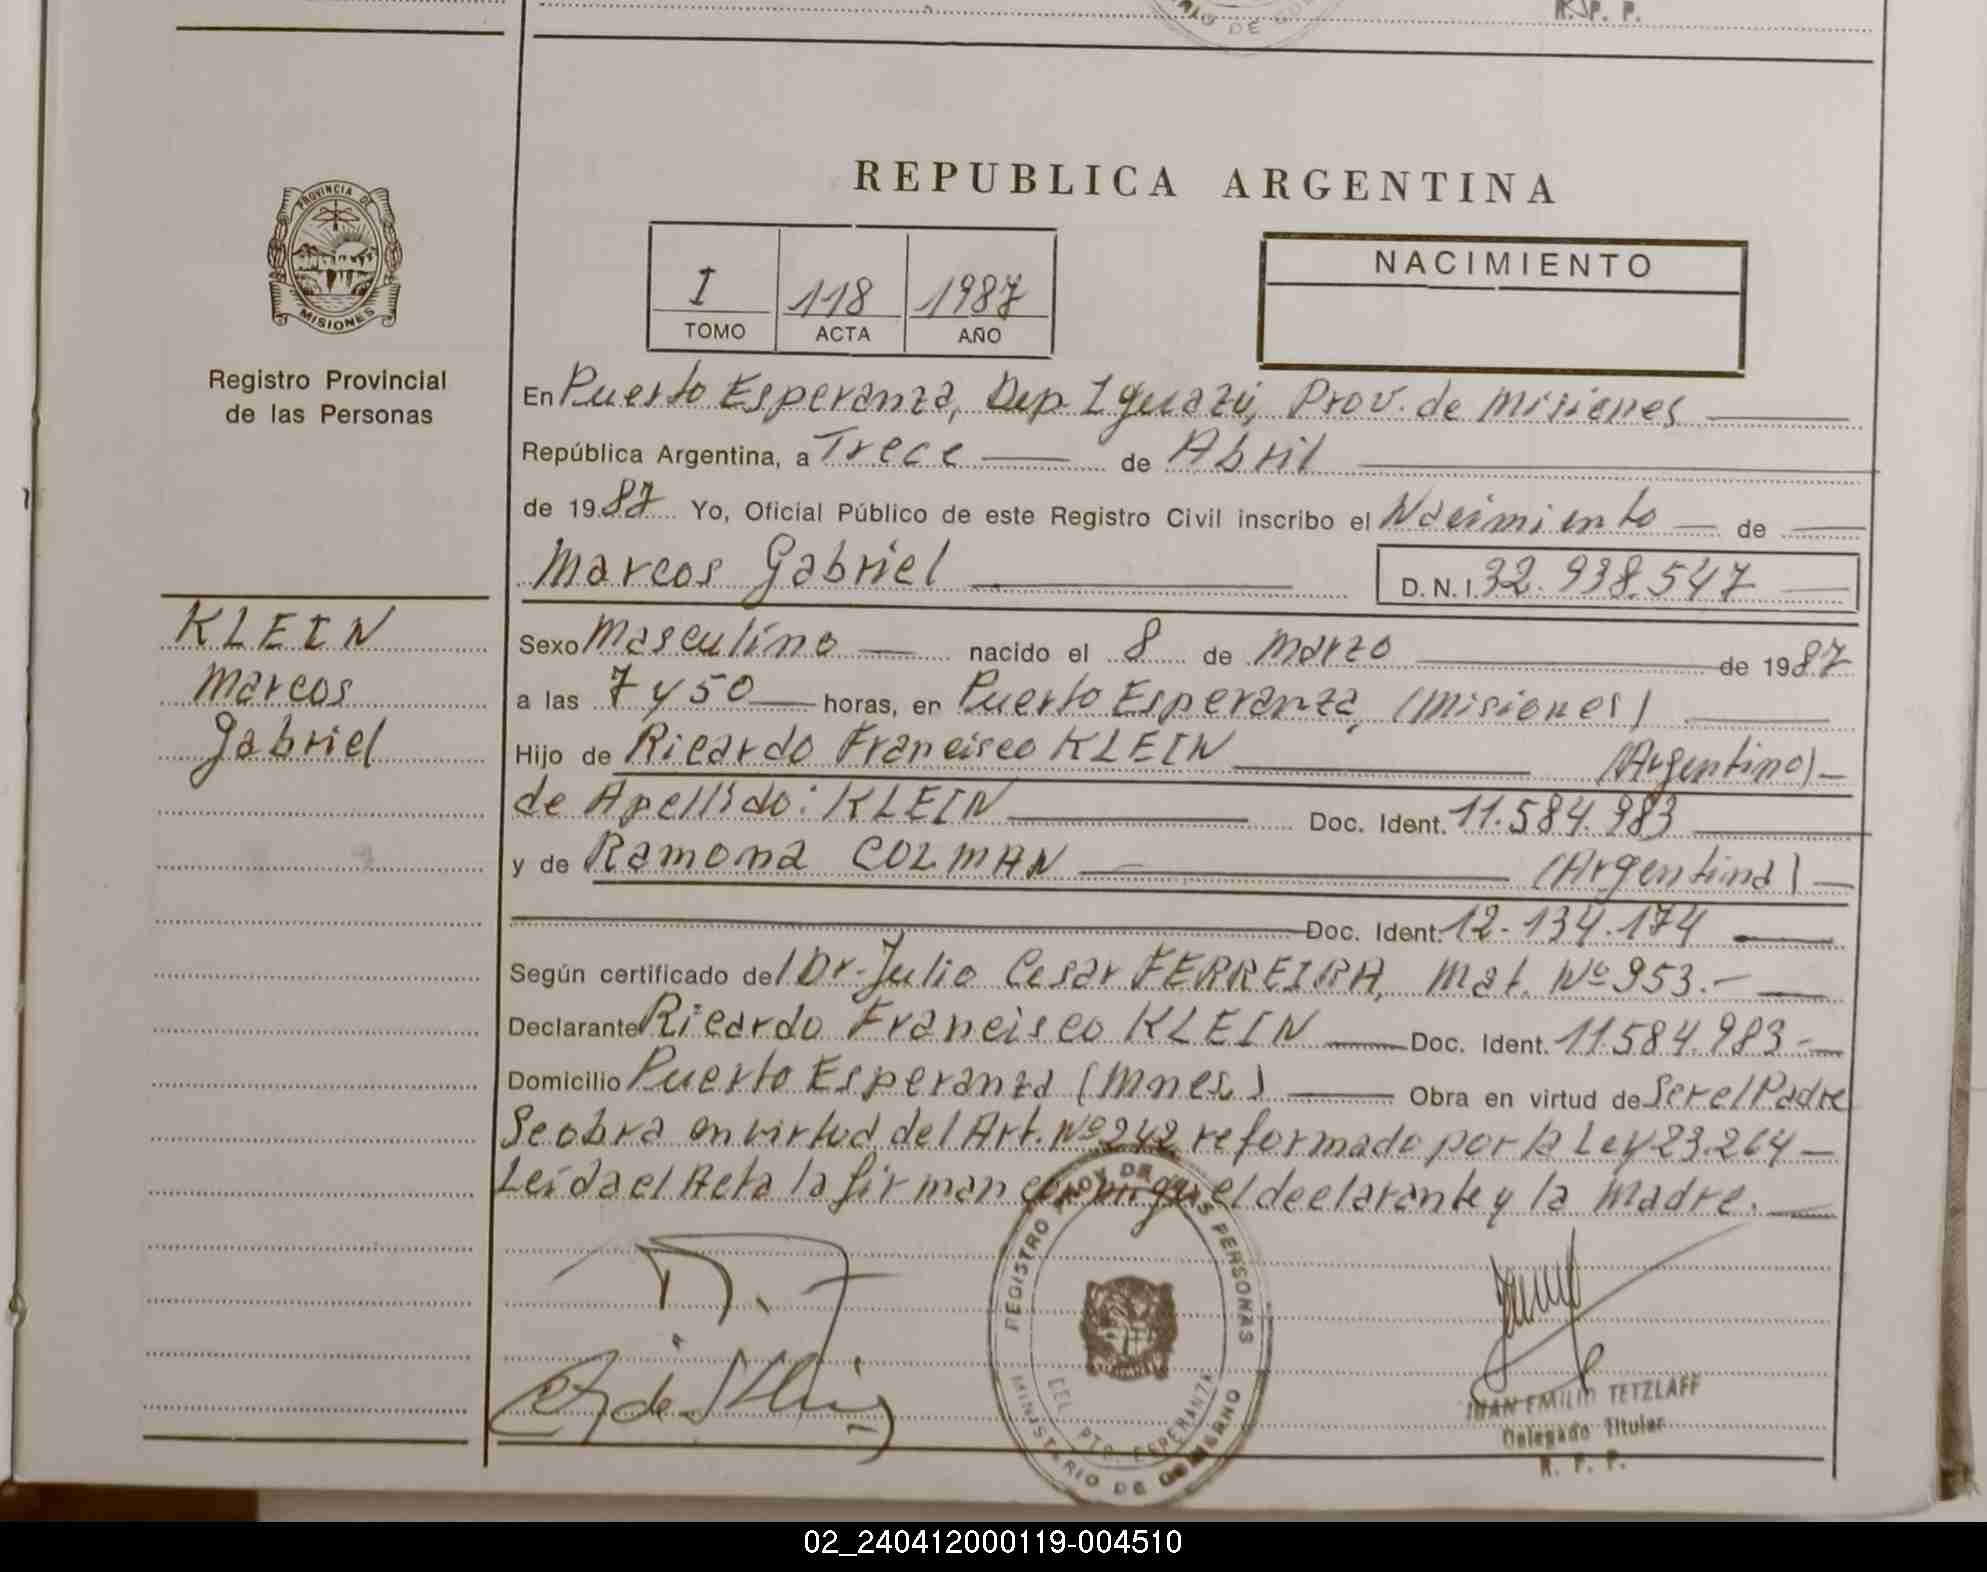 R. P. P.
DE
PROVINCIA DE
MISIONES
Registro Provincial
de las Personas
KLEIN
Marcos
Gabriel
REPUBLICA ARGENTINA
I 118 1987
TOMO ACTA AÑO
NACIMIENTO
En Puerto Esperanza, Dep. Iguazú, Prov. de Misiones
República Argentina, a Trece de Abril
de 1987 Yo, Oficial Público de este Registro Civil inscribo el Nacimiento de
Marcos Gabriel D. N. I. 32.938.547
Sexo Masculino nacido el 8 de Marzo de 1987
a las 7 y 50 horas, en Puerto Esperanza, (Misiones)
Hijo de Ricardo Francisco KLEIN (Argentino)
de Apellido: KLEIN Doc. Ident. 11.584.983
y de Ramona COLMAN (Argentina)
Doc. Ident. 12.134.174
Según certificado del Dr. Julio Cesar FERREIRA, Mat. Nº 953.-
Declarante Ricardo Francisco KLEIN Doc. Ident. 11.584.983-
Domicilio Puerto Esperanza (Mnes.) Obra en virtud de Ser el Padre
Se obra en virtud del Art. Nº 242 reformado por la Ley 23.264-
Leída el Acta la firman conmigo el declarante y la Madre.
REGISTRO PROV. DE LAS PERSONAS
DEL PTO. ESPERANZA
MINISTERIO DE GOBIERNO
JUAN EMILIO TETZLAFF
Delegado Titular
R. P. P.
02_240412000119-004510